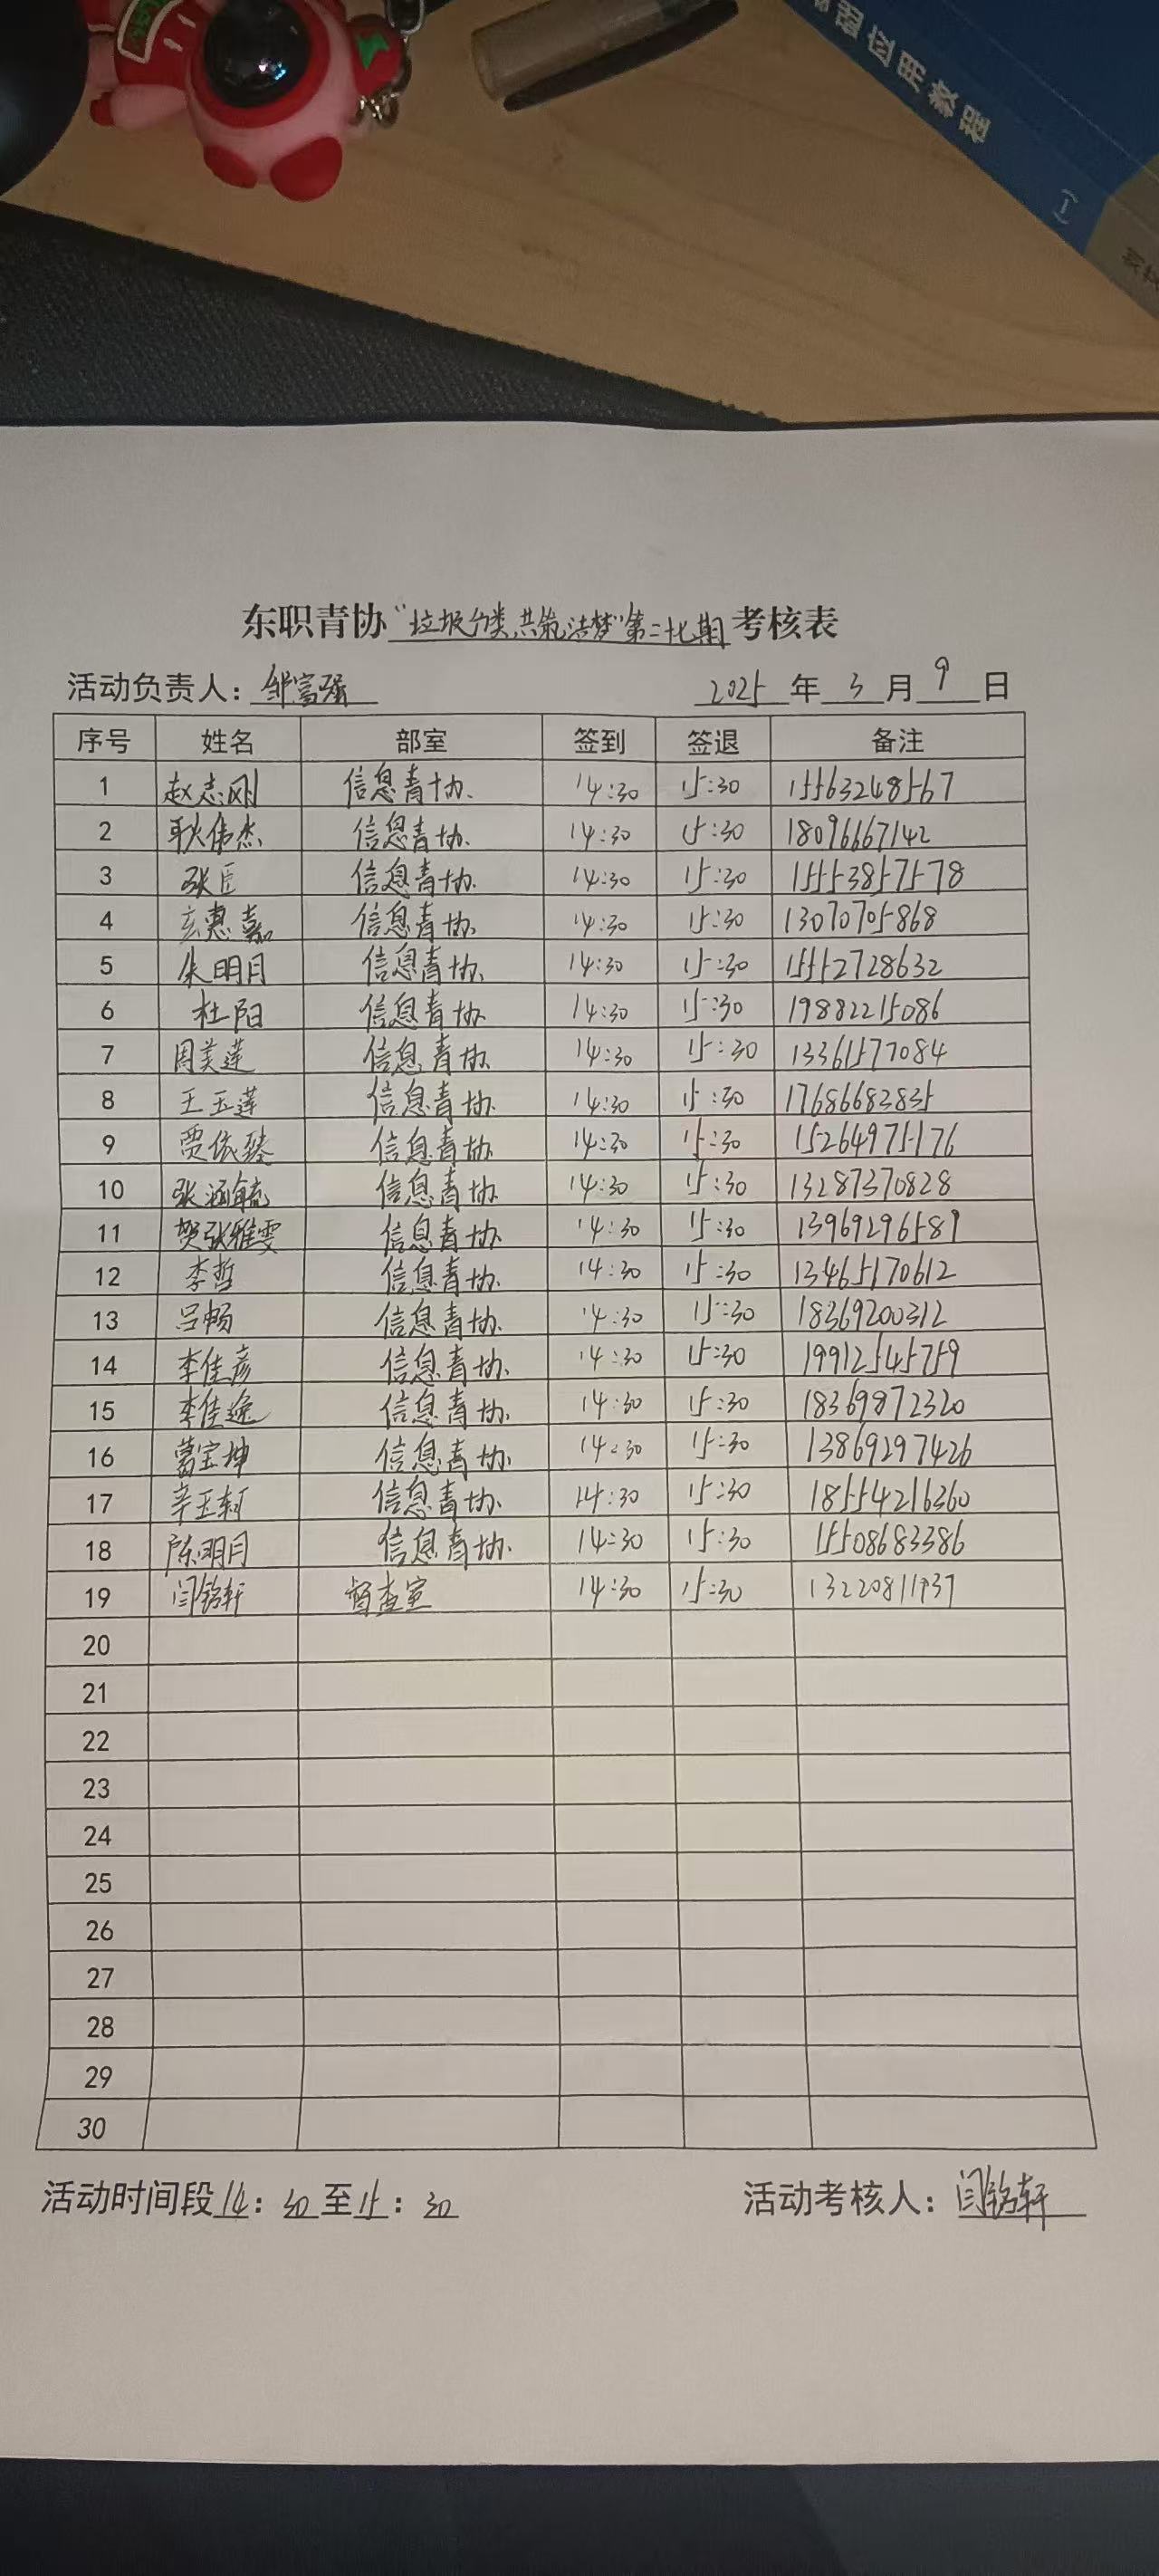 础应用教程
(一)
东职青协“垃圾分类,共筑洁梦”第二十七期考核表
活动负责人:邹富强 2025年3月9日
序号 姓名 部室 签到 签退 备注
1 赵志刚 信息青协 14:30 15:30 15563248567
2 耿伟杰 信息青协 14:30 15:30 18096667142
3 张臣 信息青协 14:30 15:30 15553857578
4 玄惠嘉 信息青协 14:30 15:30 13070705868
5 朱明月 信息青协 14:30 15:30 15552728632
6 杜阳 信息青协 14:30 15:30 19882215086
7 周美莲 信息青协 14:30 15:30 13361577084
8 王玉莲 信息青协 14:30 15:30 17686683835
9 贾依臻 信息青协 14:30 15:30 15264975176
10 张涵毓 信息青协 14:30 15:30 13287370828
11 贺张雅雯 信息青协 14:30 15:30 13969296589
12 李哲 信息青协 14:30 15:30 13465170612
13 吕畅 信息青协 14:30 15:30 18369200312
14 李佳彦 信息青协 14:30 15:30 19912545759
15 李佳逸 信息青协 14:30 15:30 18369872320
16 葛宝坤 信息青协 14:30 15:30 13869297426
17 辛玉轲 信息青协 14:30 15:30 18554216360
18 陈明月 信息青协 14:30 15:30 15508683386
19 闫铭轩 督查室 14:30 15:30 13220811937
20
21
22
23
24
25
26
27
28
29
30
活动时间段14:30至15:30 活动考核人:闫铭轩